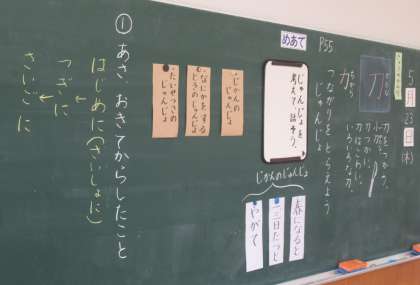 5月23日(木)
刀
かたな
力
ちから
刀をつかう。
つながりをとらえよう
じゅんじょ
P55
めあて
じゅんじょを
考えて、話そう。
じかんのじゅんじょ
春になると
二三日たつと
やがて
・じかんの
じゅんじょ
・なにかをする
ときのじゅんじょ
・たいせつさの
じゅんじょ
① あさ、おきてからしたこと
はじめに(さいしょに)
↓
つぎに
↓
さいごに